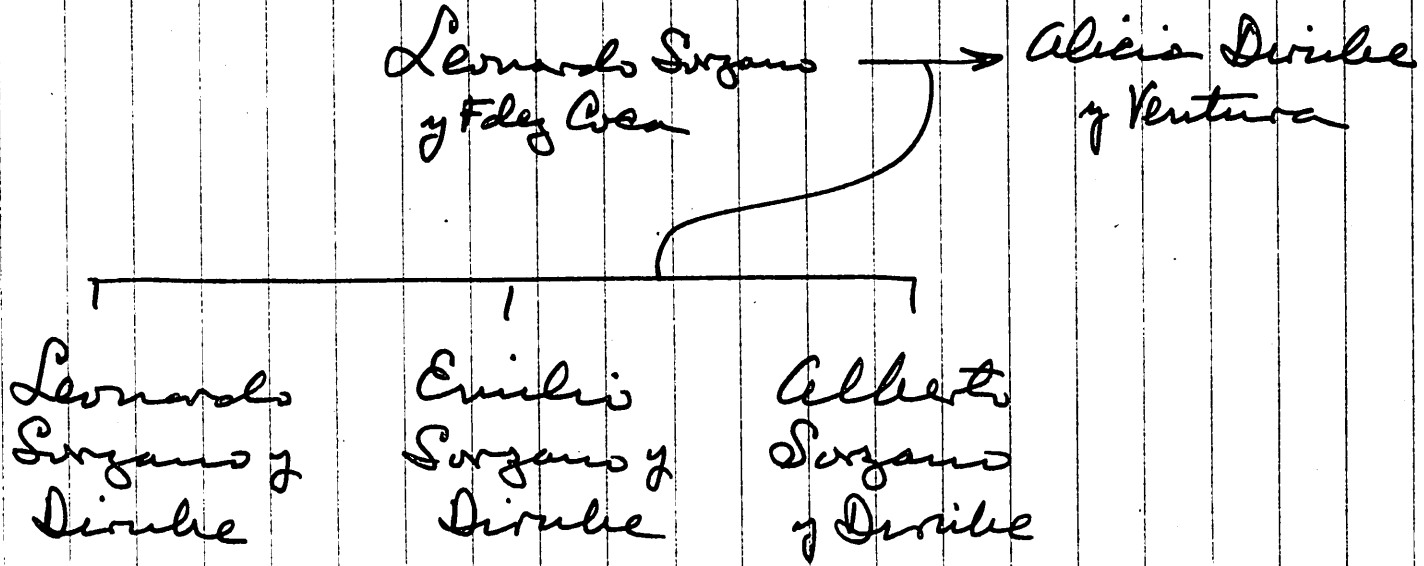 Leonardo Sorzano
y Fdez Coca
Alicia Dirube
y Ventura
Leonardo
Sorzano y
Dirube
Emilio
Sorzano y
Dirube
Alberto
Sorzano
y Dirube